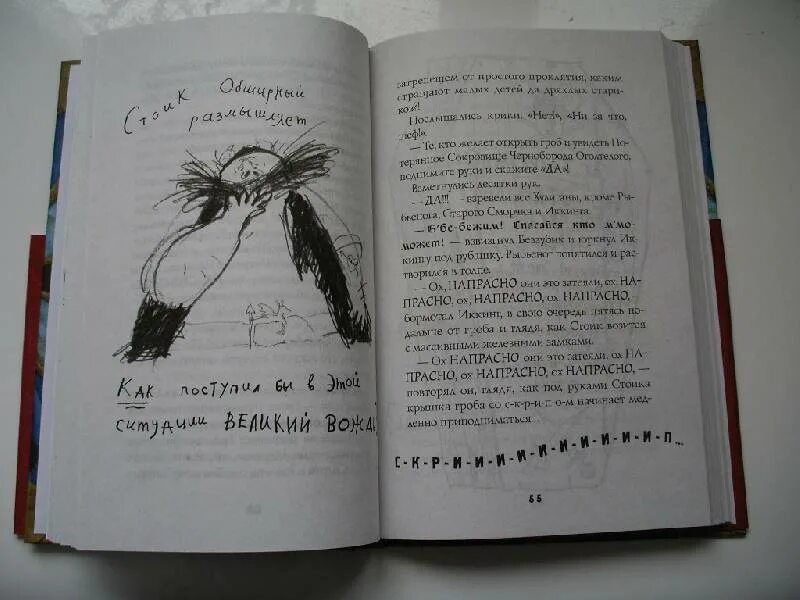 Стоик Обширный
размышляет
Как поступил бы в этой
ситуации ВЕЛИКИЙ ВОЖДЬ
запрепещем от простого проклятия, каким
стращают малых детей да дряхлых стари-
ков!
Послышались крики: «Нет!», «Ни за что,
шеф!».
— Те, кто желает открыть гроб и увидеть По-
терянное Сокровище Черноборода Оголтелого,
поднимите руки и скажите «ДА!».
Взметнулись десятки рук.
— ДА!!! — взревели все Хулиганы, кроме Ры-
бьенога, Старого Сморчка и Иккинга.
— Б'бе-бежим! Спасайся кто м'мо-
может! — взвизгнул Беззубик и юркнул Ик-
кингу под рубашку. Рыбьеног попятился и рас-
творился в толпе.
— Ох, НАПРАСНО они это затеяли, ох НА-
ПРАСНО, ох, НАПРАСНО, ох, НАПРАСНО,
бормотал Иккинг, в свою очередь пятясь по-
дальше от гроба и глядя, как Стоик возится
с массивными железными замками.
— Ох НАПРАСНО они это затеяли, ох НА-
ПРАСНО, ох НАПРАСНО, ох НАПРАСНО, —
повторял он, глядя, как под руками Стоика
крышка гроба со с-к-р-и-п-о-м начинает мед-
ленно приподниматься...
С-К-Р-И-И-И-И-И-И-И-И-И-И-П...
55